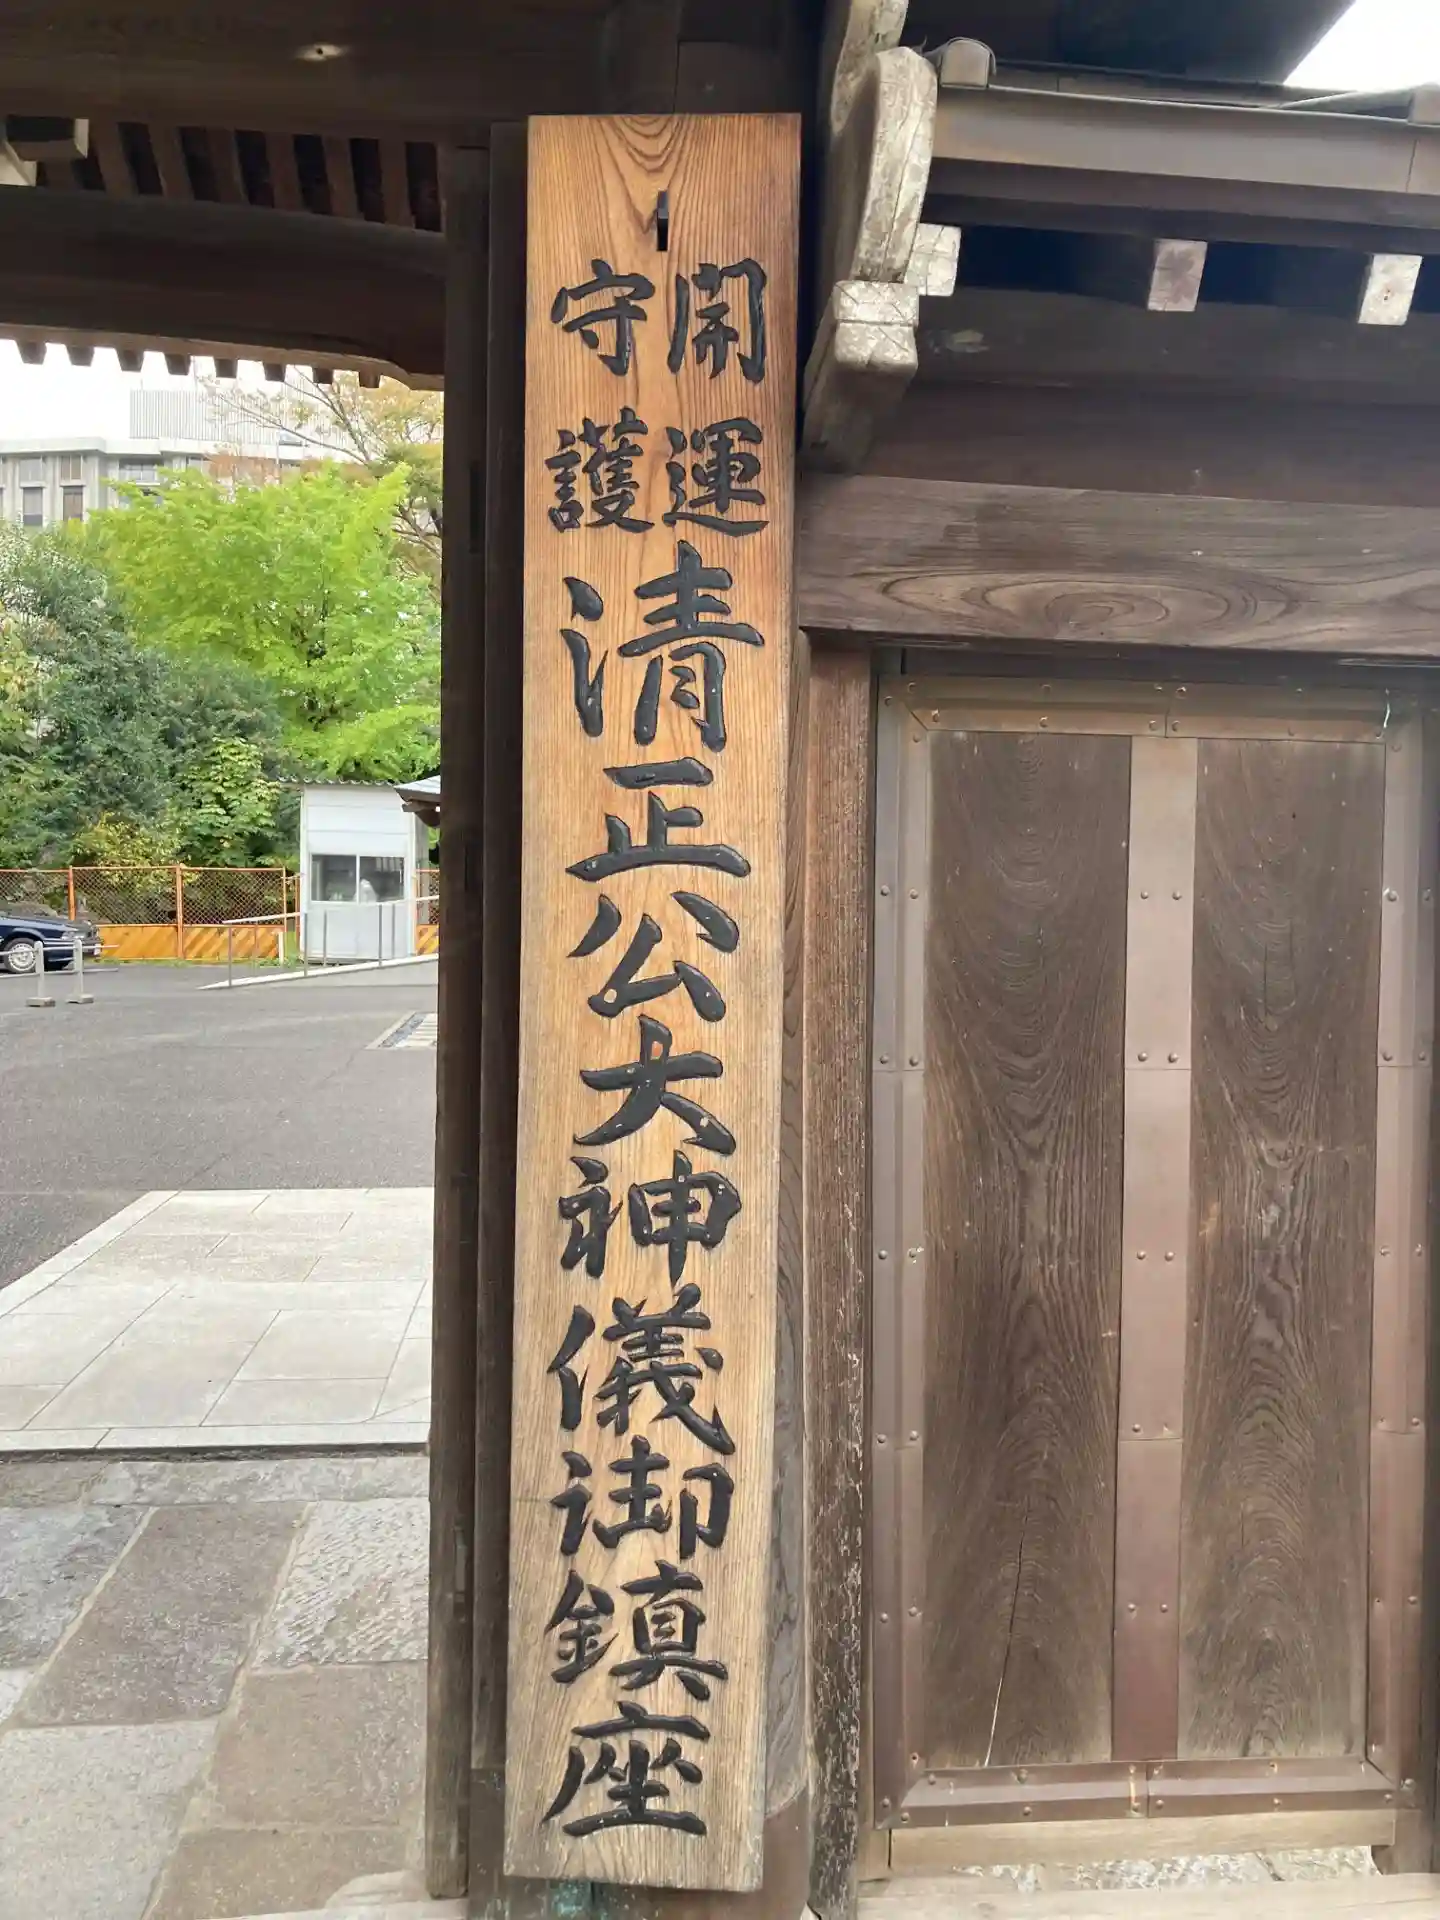 開運
守護
清正公大神儀御鎮座